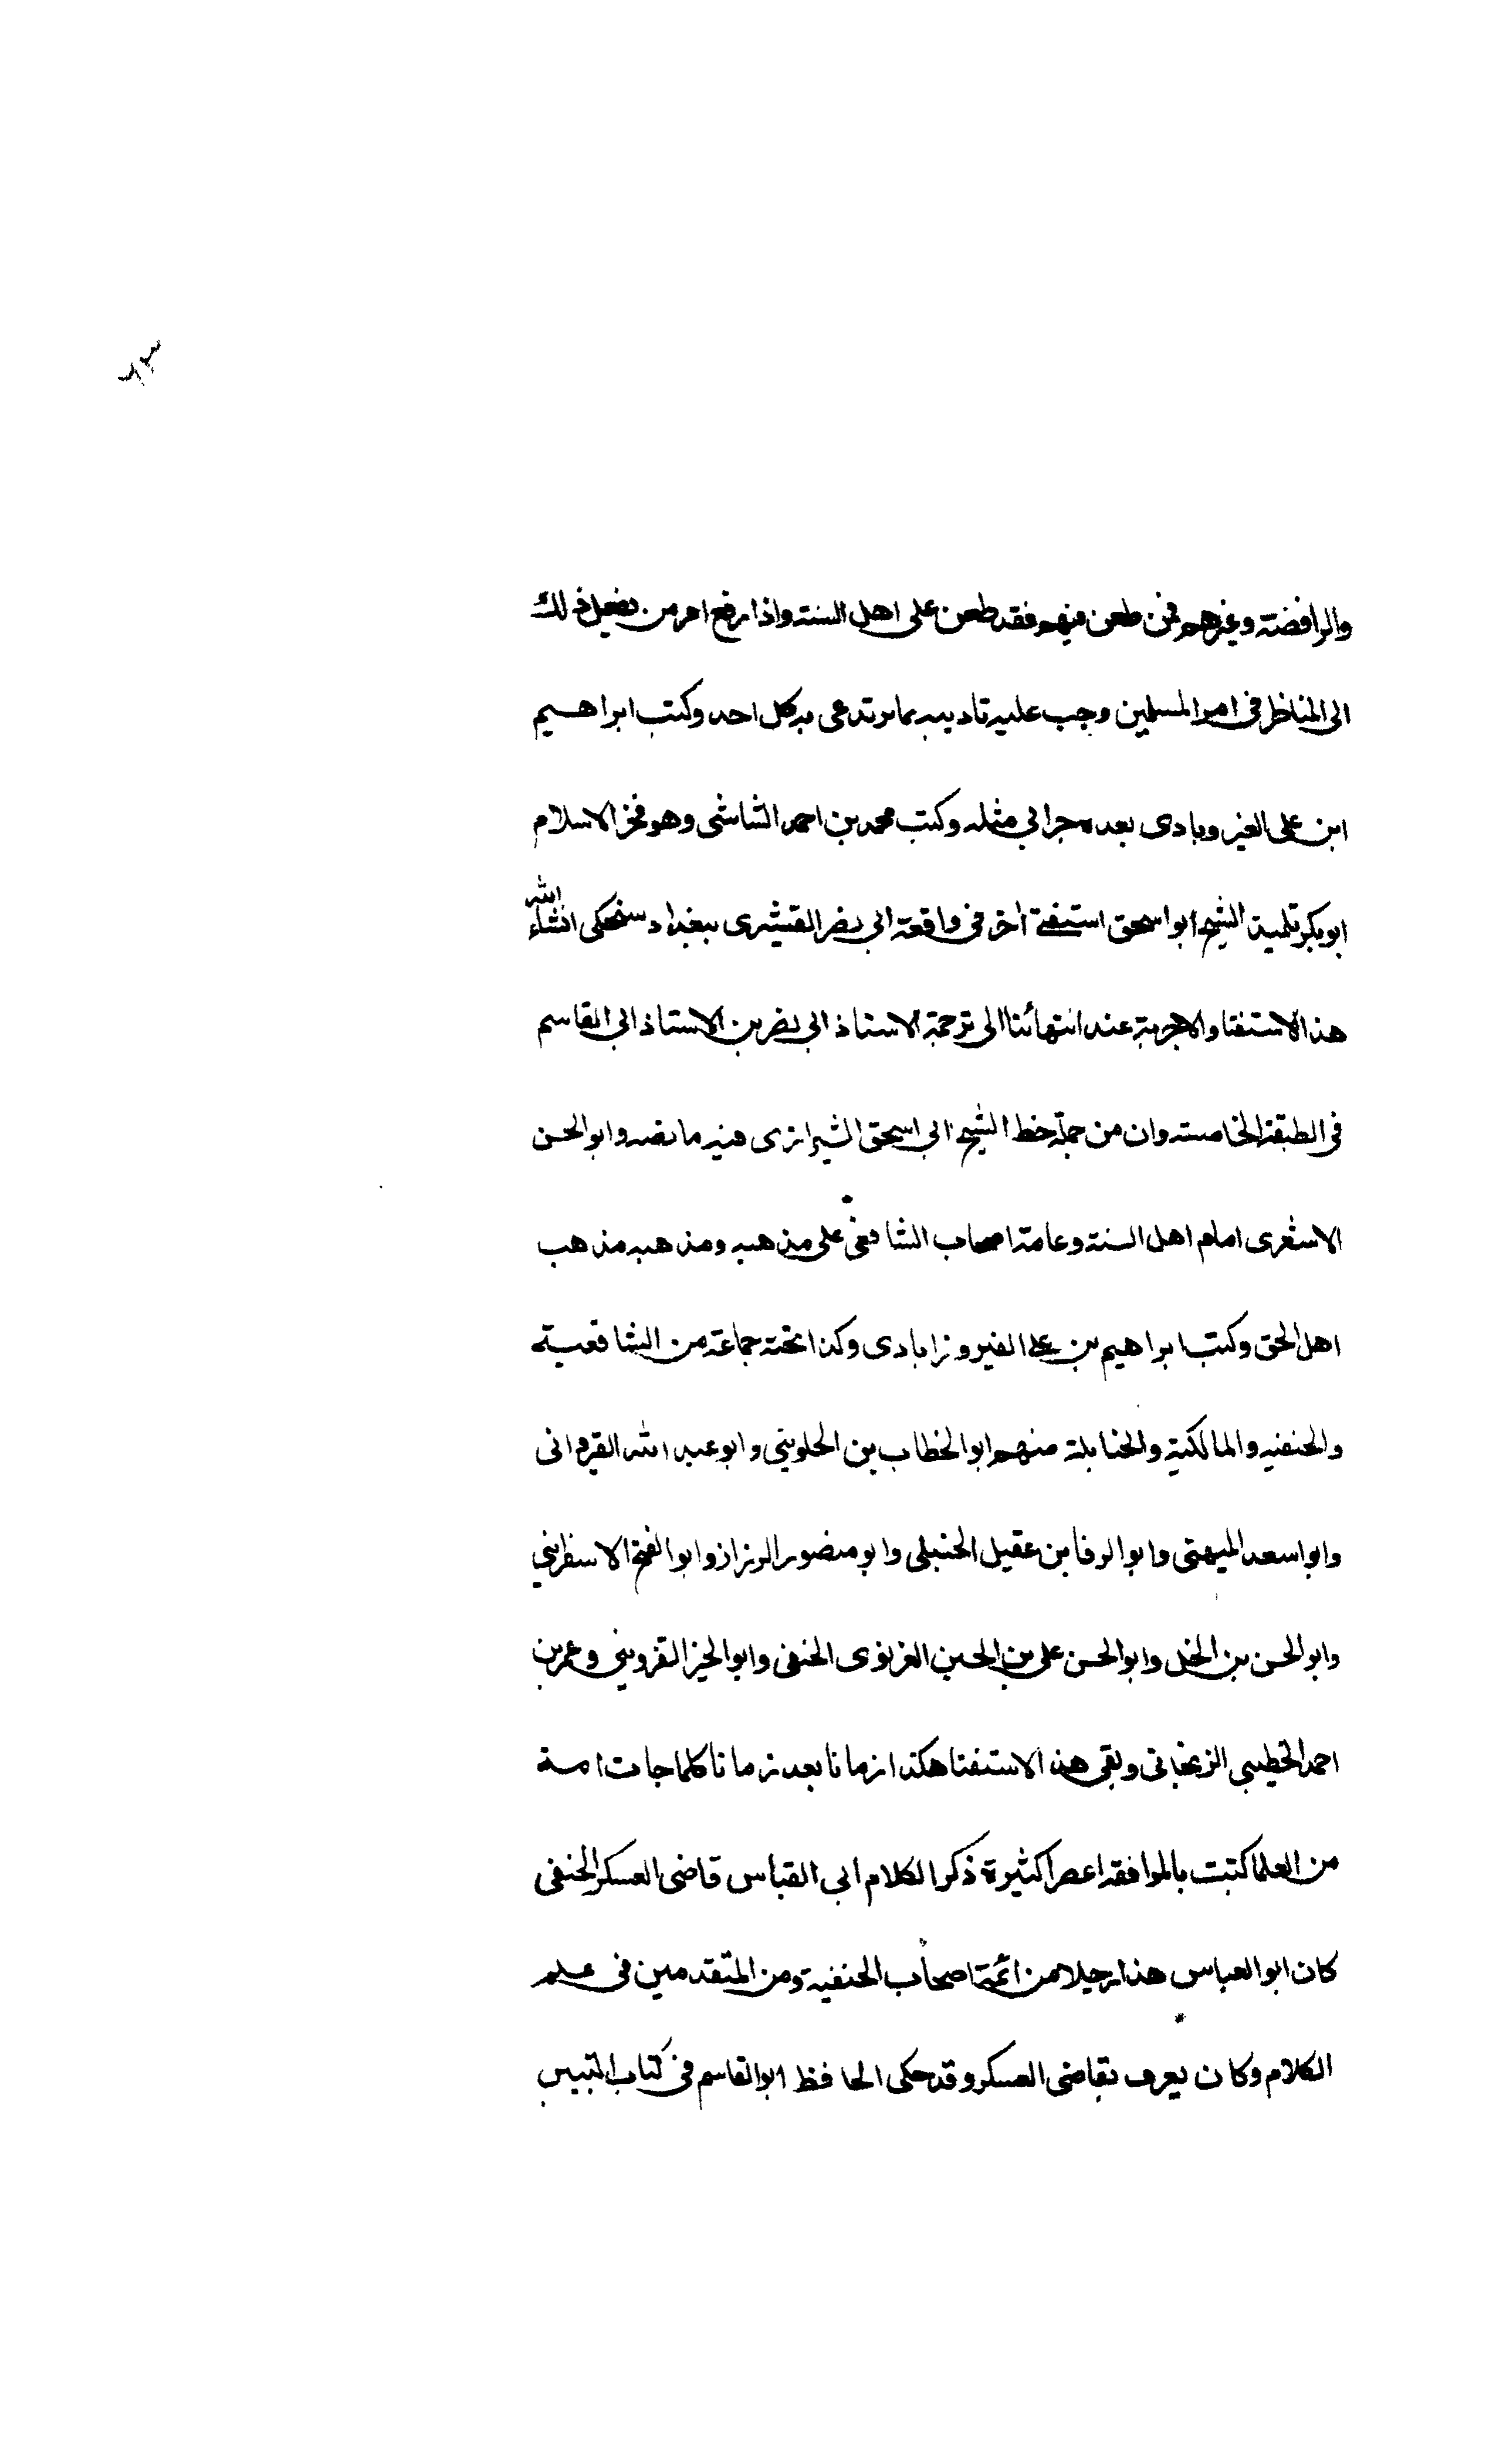 والرافضة وغيرهم فمن طعن فيهم فقد طعن على اهل السنة واذا رفع امر من يفعل ذلك
الى المناظر فى امر المسلمين وجب عليه تاديبه بما يرتدعى به كل احد وكتب ابراهيم
ابن على الفيروبادى بعده جرابى مثله وكتب محمد بن احمد الشاشى وهو فخر الاسلام
ابوبكر تلميذ الشيخ ابواسحق استفتى اخر فى واقعة ابى نصر القشيرى ببغداد سنحكى انشاء الله
هذا الاستفتا والاجربة عند انتهائنا الى ترجمة الاستاذ ابى نصر بن الاستاذ ابى القاسم
فى الطبقة الخامسة وان من جملة خط الشيخ ابى اسحق الشيرازى فيه ما نصه وابو الحسن
الاشعرى امام اهل السنة وعامة اصحاب الشافعى على مذهبه ومذهبه مذهب
اهل الحق وكتب ابراهيم بن على الفيروزابادى وكذا تحته جماعة من الشافعية
والحنفيه والمالكية والحنابلة منهم ابو الخطاب بن الحلويتى وابو عبد الله القيروانى
وابو اسعد الميهتى وابو الرفا بن عقيل الحنبلى وابو منصور الرزاز وابو الفتح الاسفراينى
وابو الحسن بن الخل وابو الحسن على بن الحسين الغزنوى الحنفى وابو الخير القزوينى وعمر بن
احمد الخطيبى الزنجانى وبقى هذا الاستفتا هكذا زمانا بعد زمانا كلما جات امة
من العلما كتبت بالموافقه اعصرا كثيرة ذكر الكلام ابى القباس قاضى العسكر الحنفى
كان ابو العباس هذا رجلا من ائمة اصحاب الحنفية ومن المتقدمين فى علم
الكلام وكان يعرف بقاضى العسكر وقد حكى الحافظ ابو القاسم فى كتاب التبيين